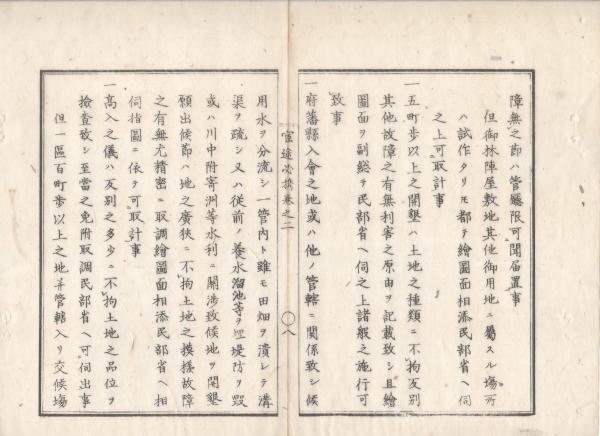 障無之節ハ管廳限可聞届置事
但御林陣屋敷地其他御用地ニ屬スル塲所
ハ試作タリ𪜈都テ繪圖面相添民部省ヘ伺
之上可取計事
一五町歩以上之開墾ハ土地之種類ニ不拘反別
其他故障之有無利害之原由ヲ記載致シ且繪
圖面ヲ副總テ民部省ヘ伺之上諸般之施行可
致事
一府藩縣入會之地或ハ他ノ管轄ニ関係致シ候
宦途必携巻之二
〇八
用水ヲ分流シ一管内ト雖モ田畑ヲ潰レテ溝
渠ヲ疏シ又ハ従前ノ養水溜池等ヲ埋堤防ヲ毀
或ハ川中附寄洲等水利ニ關渉致候地ヲ開墾
願出候節ハ地之廣狹ニ不拘土地之摸様故障
之有無尤精密ニ取調繪圖面相添民部省ヘ相
伺指圖ニ依テ可取計事
一高入之儀ハ反別之多少ニ不拘土地之品位ヲ
撿査致シ至當之免附取調民部省ヘ可伺出事
但一區百町歩以上之地并管轄入リ交候塲